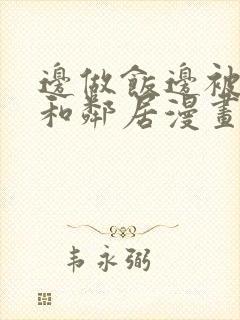 邊做飯邊被
和鄰居漫畫
韦永弼